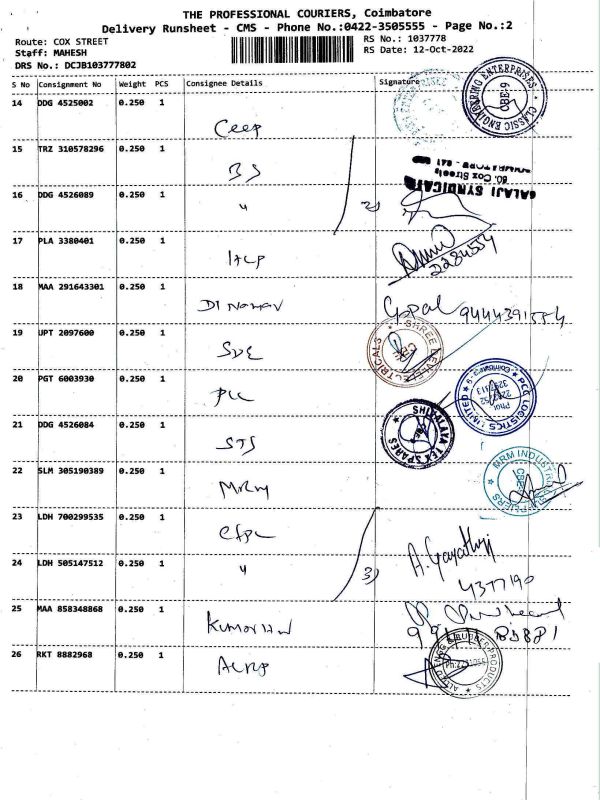 THE PROFESSIONAL COURIERS, Coimbatore
Delivery Runsheet - CMS - Phone No.:0422-3505555 - Page No.:2
Route: COX STREET RS No.: 1037778
Staff: MAHESH RS Date: 12-Oct-2022
DRS No.: DCJB103777802
S No Consignment No Weight PCS Consignee Details Signature
14 DDG 4525002 0.250 1 Ceep
CLASSIC ENGINEERING ENTERPRISES CBE-9
15 TRZ 310578296 0.250 1 BS
BALAJI SYNDICATE
60, Cox Street,
16 DDG 4526089 0.250 1 "
17 PLA 3380401 0.250 1 IACP 2284554
18 MAA 291643301 0.250 1 Gopal
19 UPT 2097600 0.250 1 SDE
SHREE ELECTRICALS CBE
20 PGT 6003930 0.250 1 PLC
PCG LOGISTICS LIMITED
21 DDG 4526084 0.250 1 STS
SHIVALAYA TEX SPARES CBE
22 SLM 305190389 0.250 1 MRM
MRM INDUSTRIAL SUPPLIERS
23 LDH 700299535 0.250 1 CFPL A. Gayathri
24 LDH 505147512 0.250 1 " 3) 4377190
25 MAA 858348868 0.250 1
26 RKT 8882968 0.250 1 ACRP
ENGG & RUBBER PRODUCTS